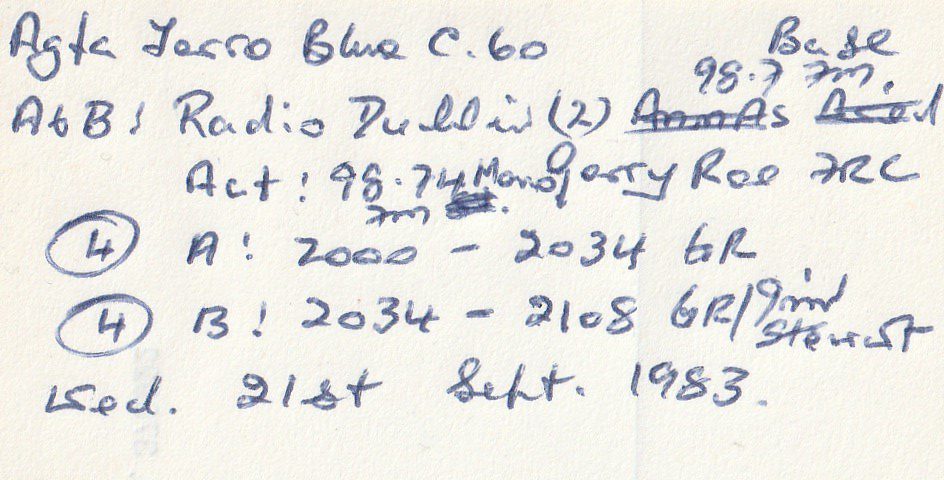 Agfa Ferro Blue C.60 Base
98.7 FM.
A & B: Radio Dublin (2)
Act: 98.74 Mono Gerry Roe
FM
4 A: 2000 - 2034 GR
4 B: 2034 - 2108 GR/
Stewart
Wed. 21st Sept. 1983.